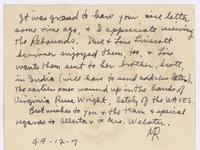 It was grand to have your nice letter
some time ago, & I appreciate receiving
the Rebounds. Dave & Lois Linscott
Scrivner enjoyed them too, & Lois
wants them sent to her brother, Scott,
in India (will have to send address later).
The earlier ones wound up in the hands of
Virginia Russ Wright, lately of the WAVES.
Best wishes to you & the team & special
regards to Alberta & to Mrs. Webster.
MR
44-12-7